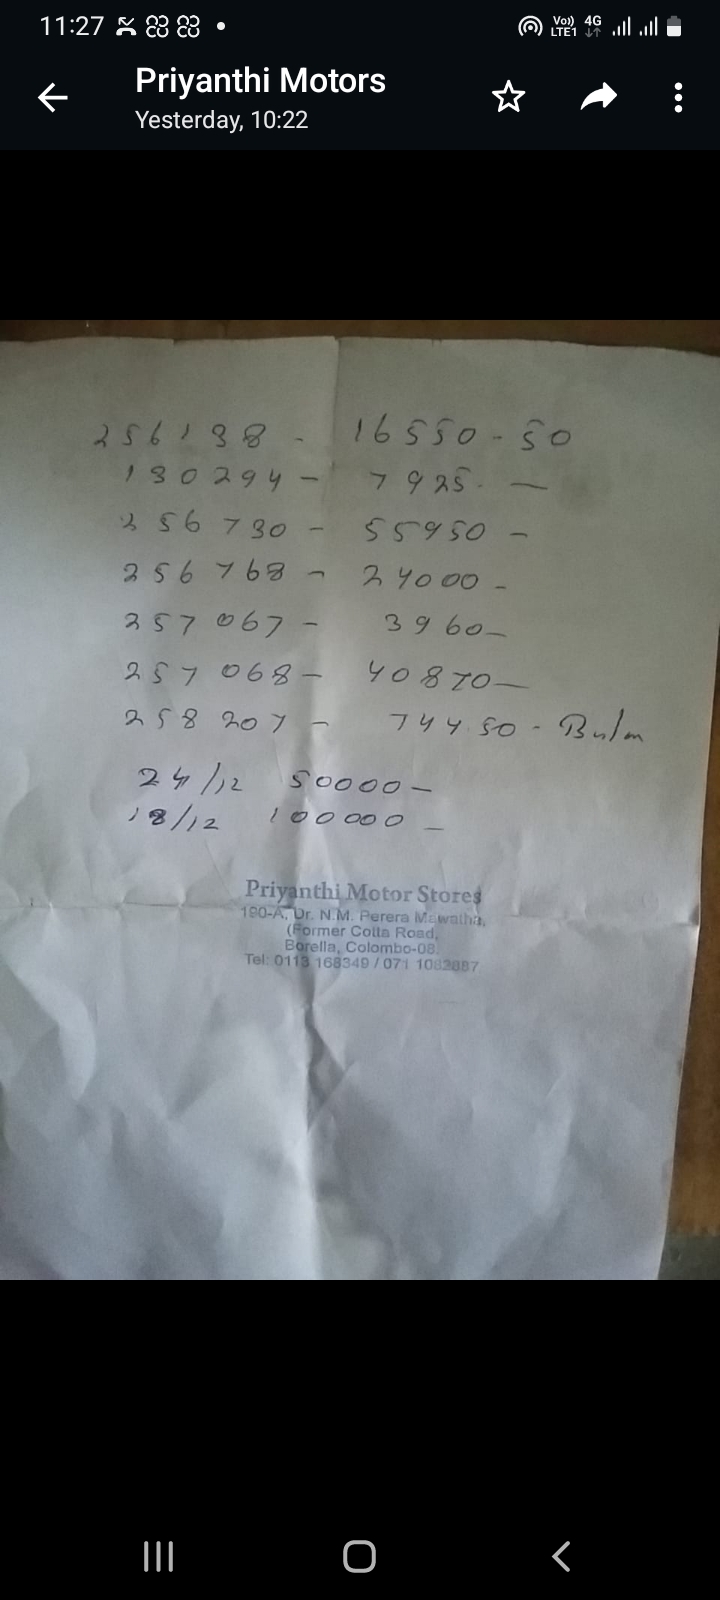 11:27
Vo)) LTE1 4G
Priyanthi Motors
Yesterday, 10:22
256198 - 16550-50
130294 - 7925. —
256730 - 55950 -
256768 - 24000 -
257067 - 3960 —
257068 - 40870 —
258207 - 744.50 -
24/12 50000 —
18/12 100000 —
Priyanthi Motor Stores
190-A, Dr. N.M. Perera Mawatha,
(Former Cotta Road,
Borella, Colombo-08.
Tel: 0113 168349 / 071 1082887